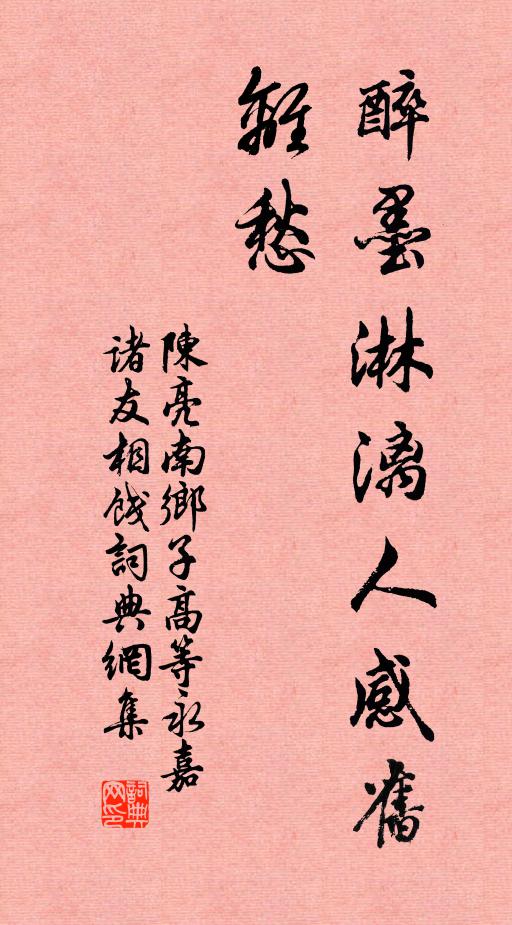 醉墨淋漓人感舊
離愁
陳亮南鄉子高等永嘉
諸友相餞詞典網集
詞典
网印